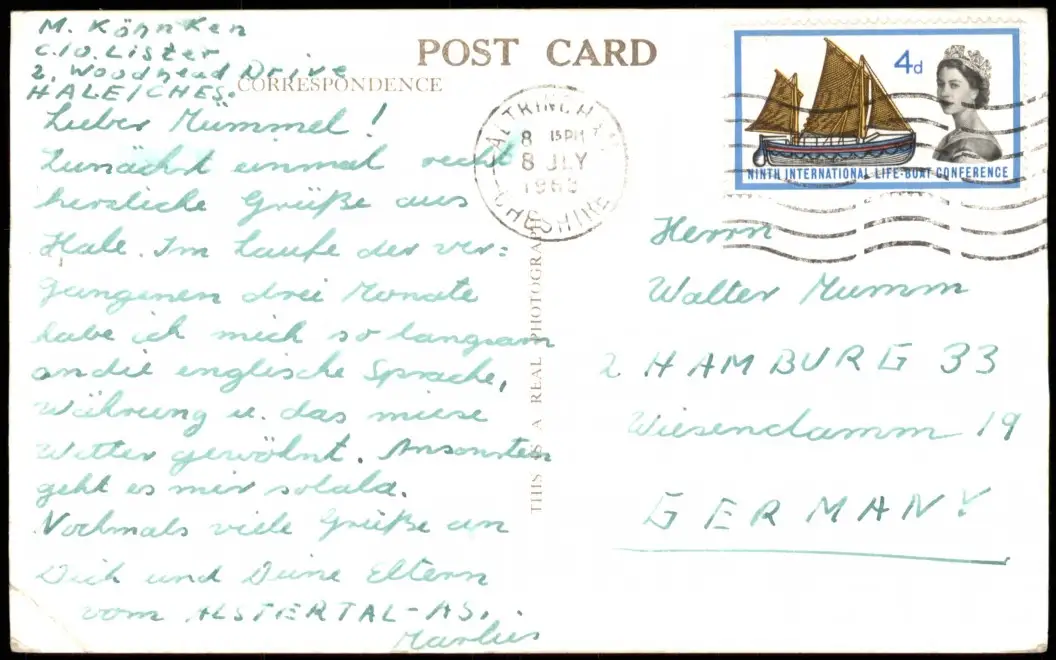 M. Köhnken
c.o. Lister
2, Woodhead Drive
HALE/CHES.
POST CARD
CORRESPONDENCE
Lieber Mümmel!
Zunächst einmal recht
herzliche Grüße aus
Hale. Im Laufe der ver=
gangenen drei Monate
habe ich mich so langsam
an die englische Sprache,
Währung u. das miese
Wetter gewöhnt. Ansonsten
geht es mir solala.
Nochmals viele Grüße an
Dich und Deine Eltern
vom ALSTERTAL-AS.
Marlies
THIS IS A REAL PHOTOGRAPH
ALTRINCHAM
8 15 PM
8 JLY
1963
CHESHIRE
4d
NINTH INTERNATIONAL LIFE-BOAT CONFERENCE
Herrn
Walter Mumm
2 HAMBURG 33
Wiesendamm 19
GERMANY